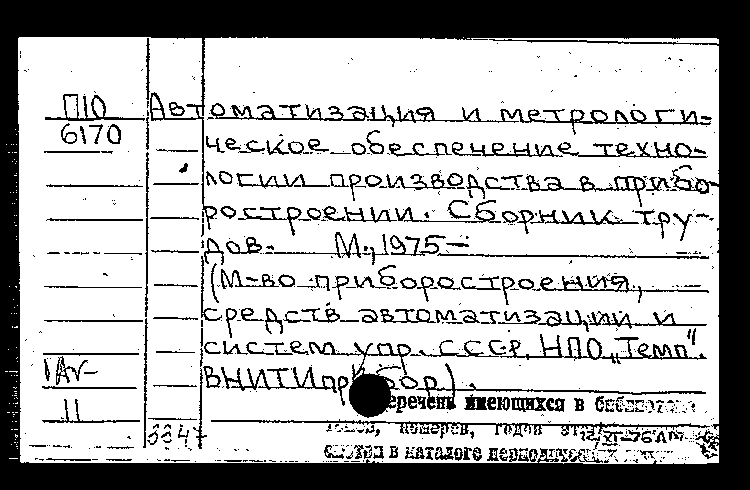 П10
6170
Автоматизация и метрологи-
ческое обеспечение техно-
логии производства в прибо-
ростроении. Сборник тру-
дов. М., 1975-
(М-во приборостроения,
средств автоматизации и
систем упр. СССР, НПО „Темп".
ВНИТИприбор).
11
334
имеющихся в
томов, номеров, годов
смотри в каталоге